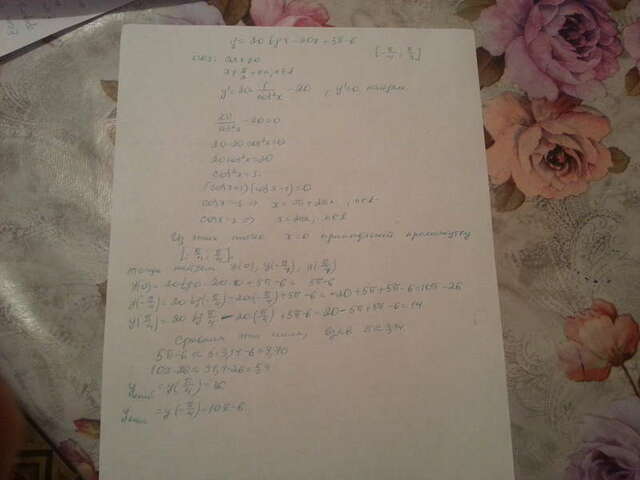 y = 20 tg x - 20x + 5π - 6
[-π/4; π/4]
ОДЗ: cos x ≠ 0
x ≠ π/2 + πn, n∈Z
y' = 20 · 1/cos²x - 20, y' = 0
20/cos²x - 20 = 0
20 - 20 cos²x = 0
20 cos²x = 20
cos²x = 1
(cos x + 1)(cos x - 1) = 0
x = π + 2πn, n∈Z
x = 2πn, n∈Z
Из этих точек x = 0 промежутку
[-π/4; π/4]
найдем y(0), y(-π/4), y(π/4)
y(0) = 20 tg 0 - 20·0 + 5π - 6 = 5π - 6
y(-π/4) = 20 tg(-π/4) - 20(-π/4) + 5π - 6 = -20 + 5π + 5π - 6 = 10π - 26
y(π/4) = 20 tg π/4 - 20(π/4) + 5π - 6 = 20 - 5π + 5π - 6 = 14
Сравним эти числа, π ≈ 3,14
5π - 6 ≈ 5·3,14 - 6 = 9,70
10π - 26 ≈ 31,4 - 26 = 5,4
= y(π/4) =
= y(-π/4) =